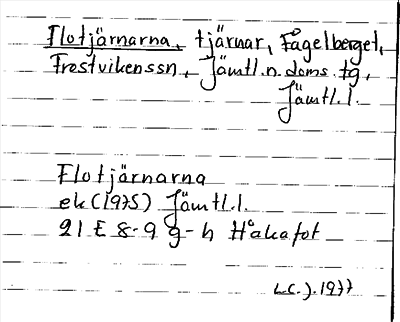 Flotjärnarna, tjärnar, Fågelberget,
Frostvikenssn, Jämtl.n.doms.tg,
Jämtl.l.
Flotjärnarna
ek (1975) Jämtl.l.
21 E 8-9 g-h Håkafot
L.C.J. 1977